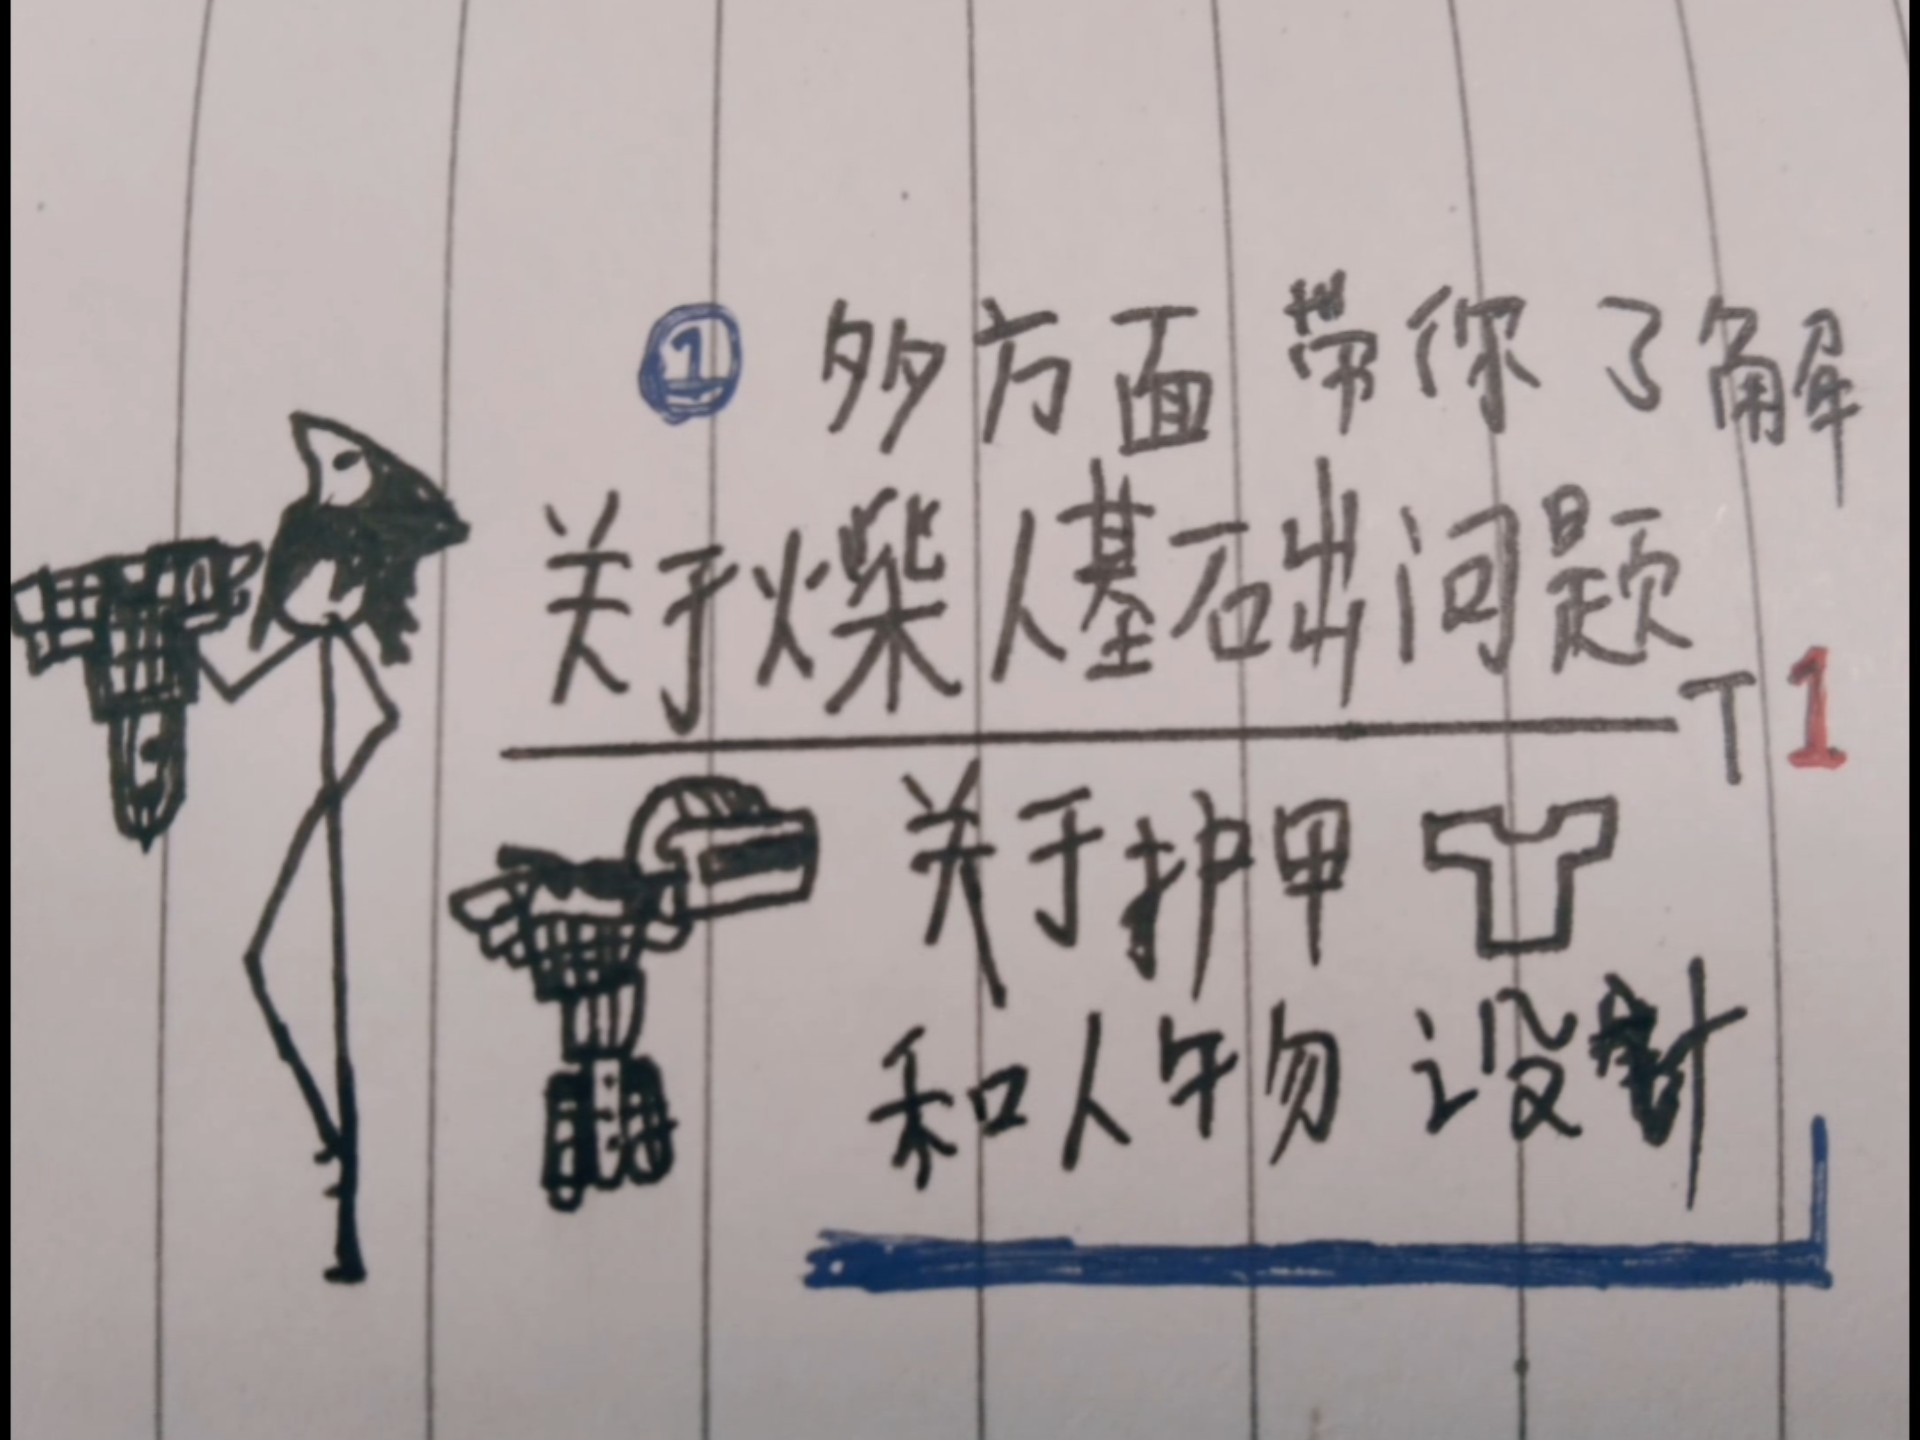 ① 多方面带你了解
关于火柴人基础问题
T1
关于护甲
和人物设计